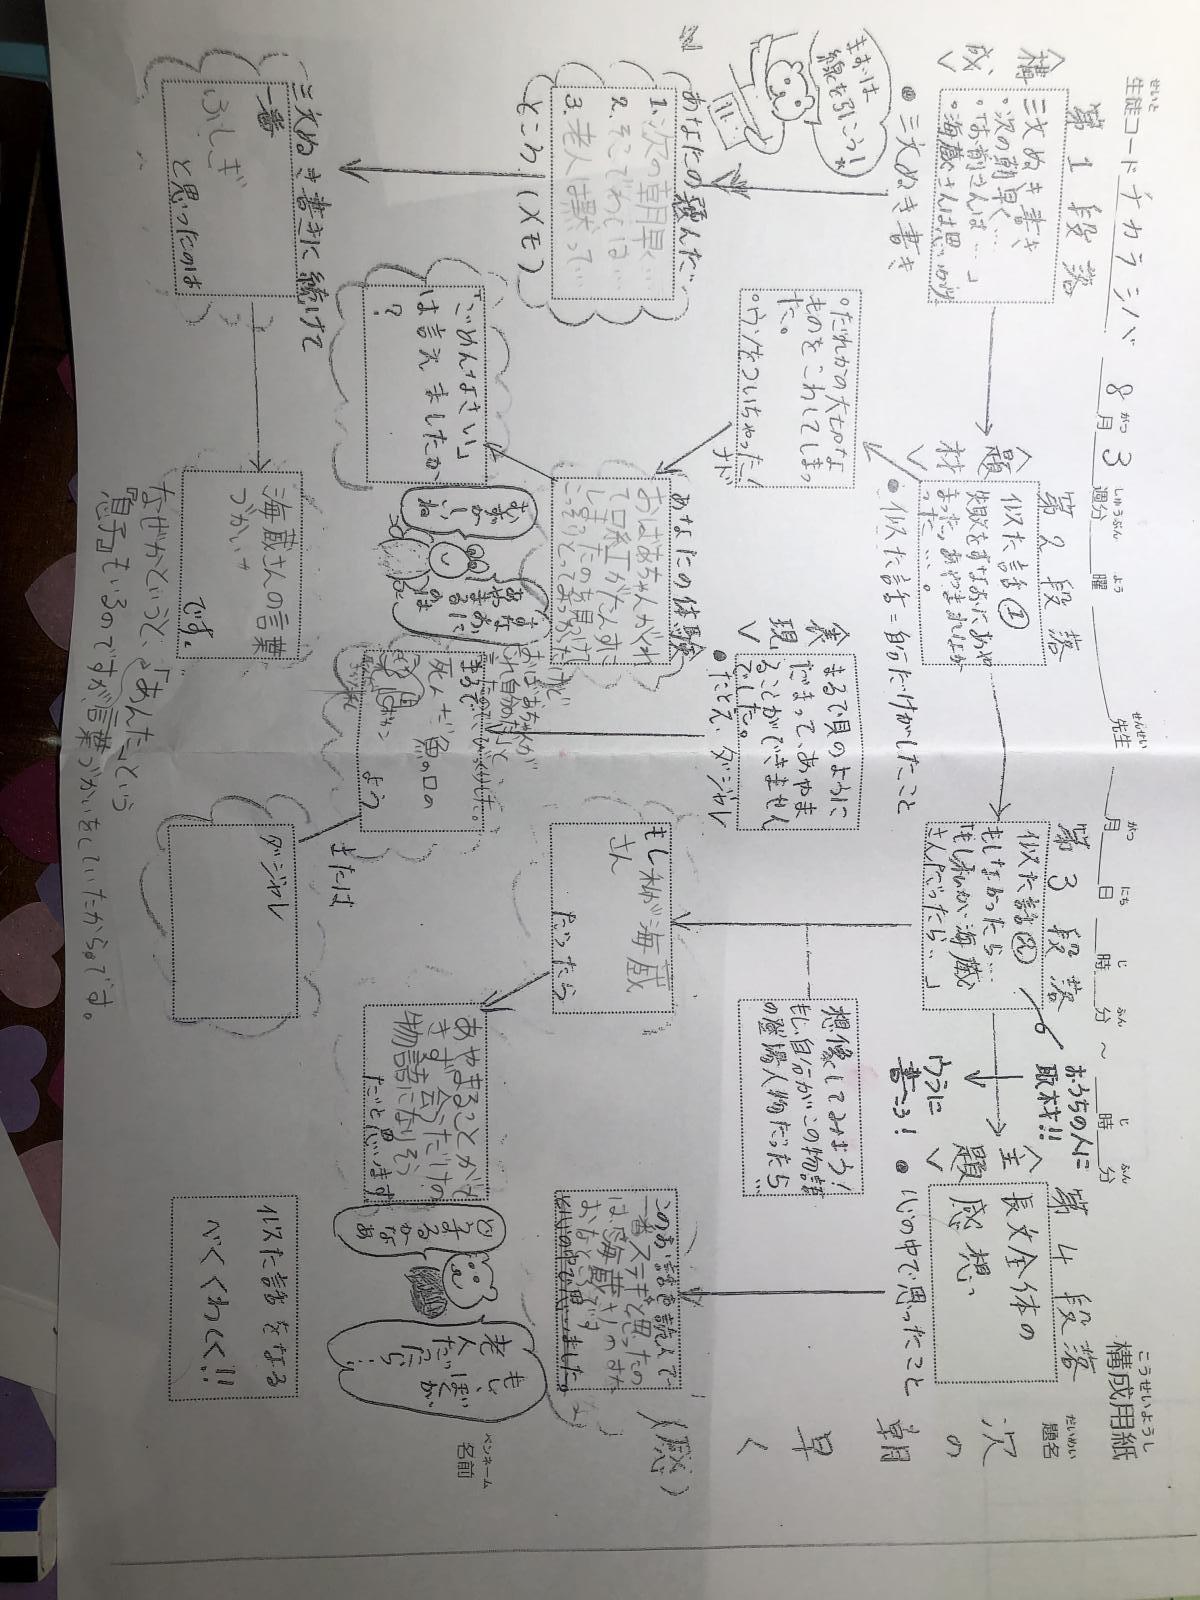 構成用紙
こうせいようし
生徒コード チカラシバ 8月3週分 曜 先生 月 日 時 分 ~ 時 分
せいと がつ しゅうぶん よう せんせい がつ にち じ ふん じ ふん
題名
だいめい
次の朝早く
(感)
ペンネーム
名前
<構成>
第1段落
三文ぬき書き
・次の朝早く…
・「お前さんは…」
・海蔵さんは思いがけ
●三文ぬき書き
まずは
線を引こう!
あなたの
1.次の朝早く…
2.そこでわしは…
3.老人は黙って…
ところ(メモ)
三文ぬき書きに続けて
一番
ふしぎ
と思ったのは
海蔵さんの言葉
づかい
です。
なぜかというと、「あんた」という
息子もいるのですが言葉づかいをしていたからです。
<題材>
第2段落
似た話①
失敗をすなおにあや
まったらあやまれなか
った…。
●似た話=自分だけがしたこと
・だれかの大切な
ものをこわしてしまっ
た。
・ウソをついちゃった!
ナド
あなたの体験
おばあちゃんがくれ
て口紅がたんすに
しまったのを見つけ
「ごめんなさい」
は言えましたか
?
すなおに
あやまる
のは
ね
<表現>
まるで貝のように
だまって、あやま
ることができません
でした。
●たとえ、ダジャレ
おばあちゃんが
まるで
死んだ魚の口の
よう
または
ダジャレ
第3段落
似た話②
もしなかったら…
「もし私が海蔵
さんだったら…」
おうちの人に
取材!!
ウラに
書こう!
想像してみよう!
もし自分がこの物語
の登場人物だったら
…
もし私が海蔵
さん
だったら
あやまることがで
きず言うだけの
物語になりそう
だと思います
<主題>
第4段落
長文全体の
感想
●心の中で思ったこと
このお話を読んで
一番ステキと思ったの
は、海蔵さんのすな
おなところです
と心の中で思いました。
どう
する
かな
あ
もし
ぼくが
老人
だったら!
似た話をなる
べくくわしく!!